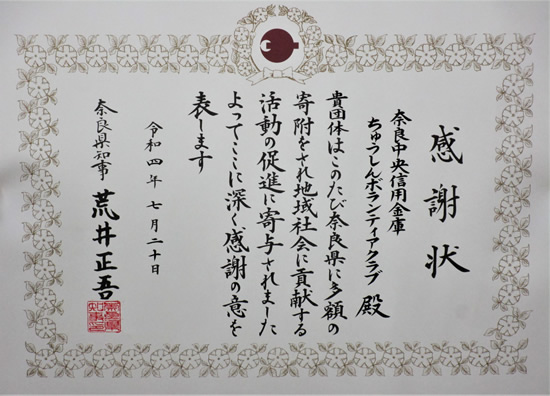 感謝状
奈良中央信用金庫
ちゅうしんボランティアクラブ 殿
貴団体はこのたび奈良県に多額の
寄附をされ地域社会に貢献する
活動の促進に寄与されました
よってここに深く感謝の意を
表します
令和四年 七月二十日
奈良県知事 荒井正吾